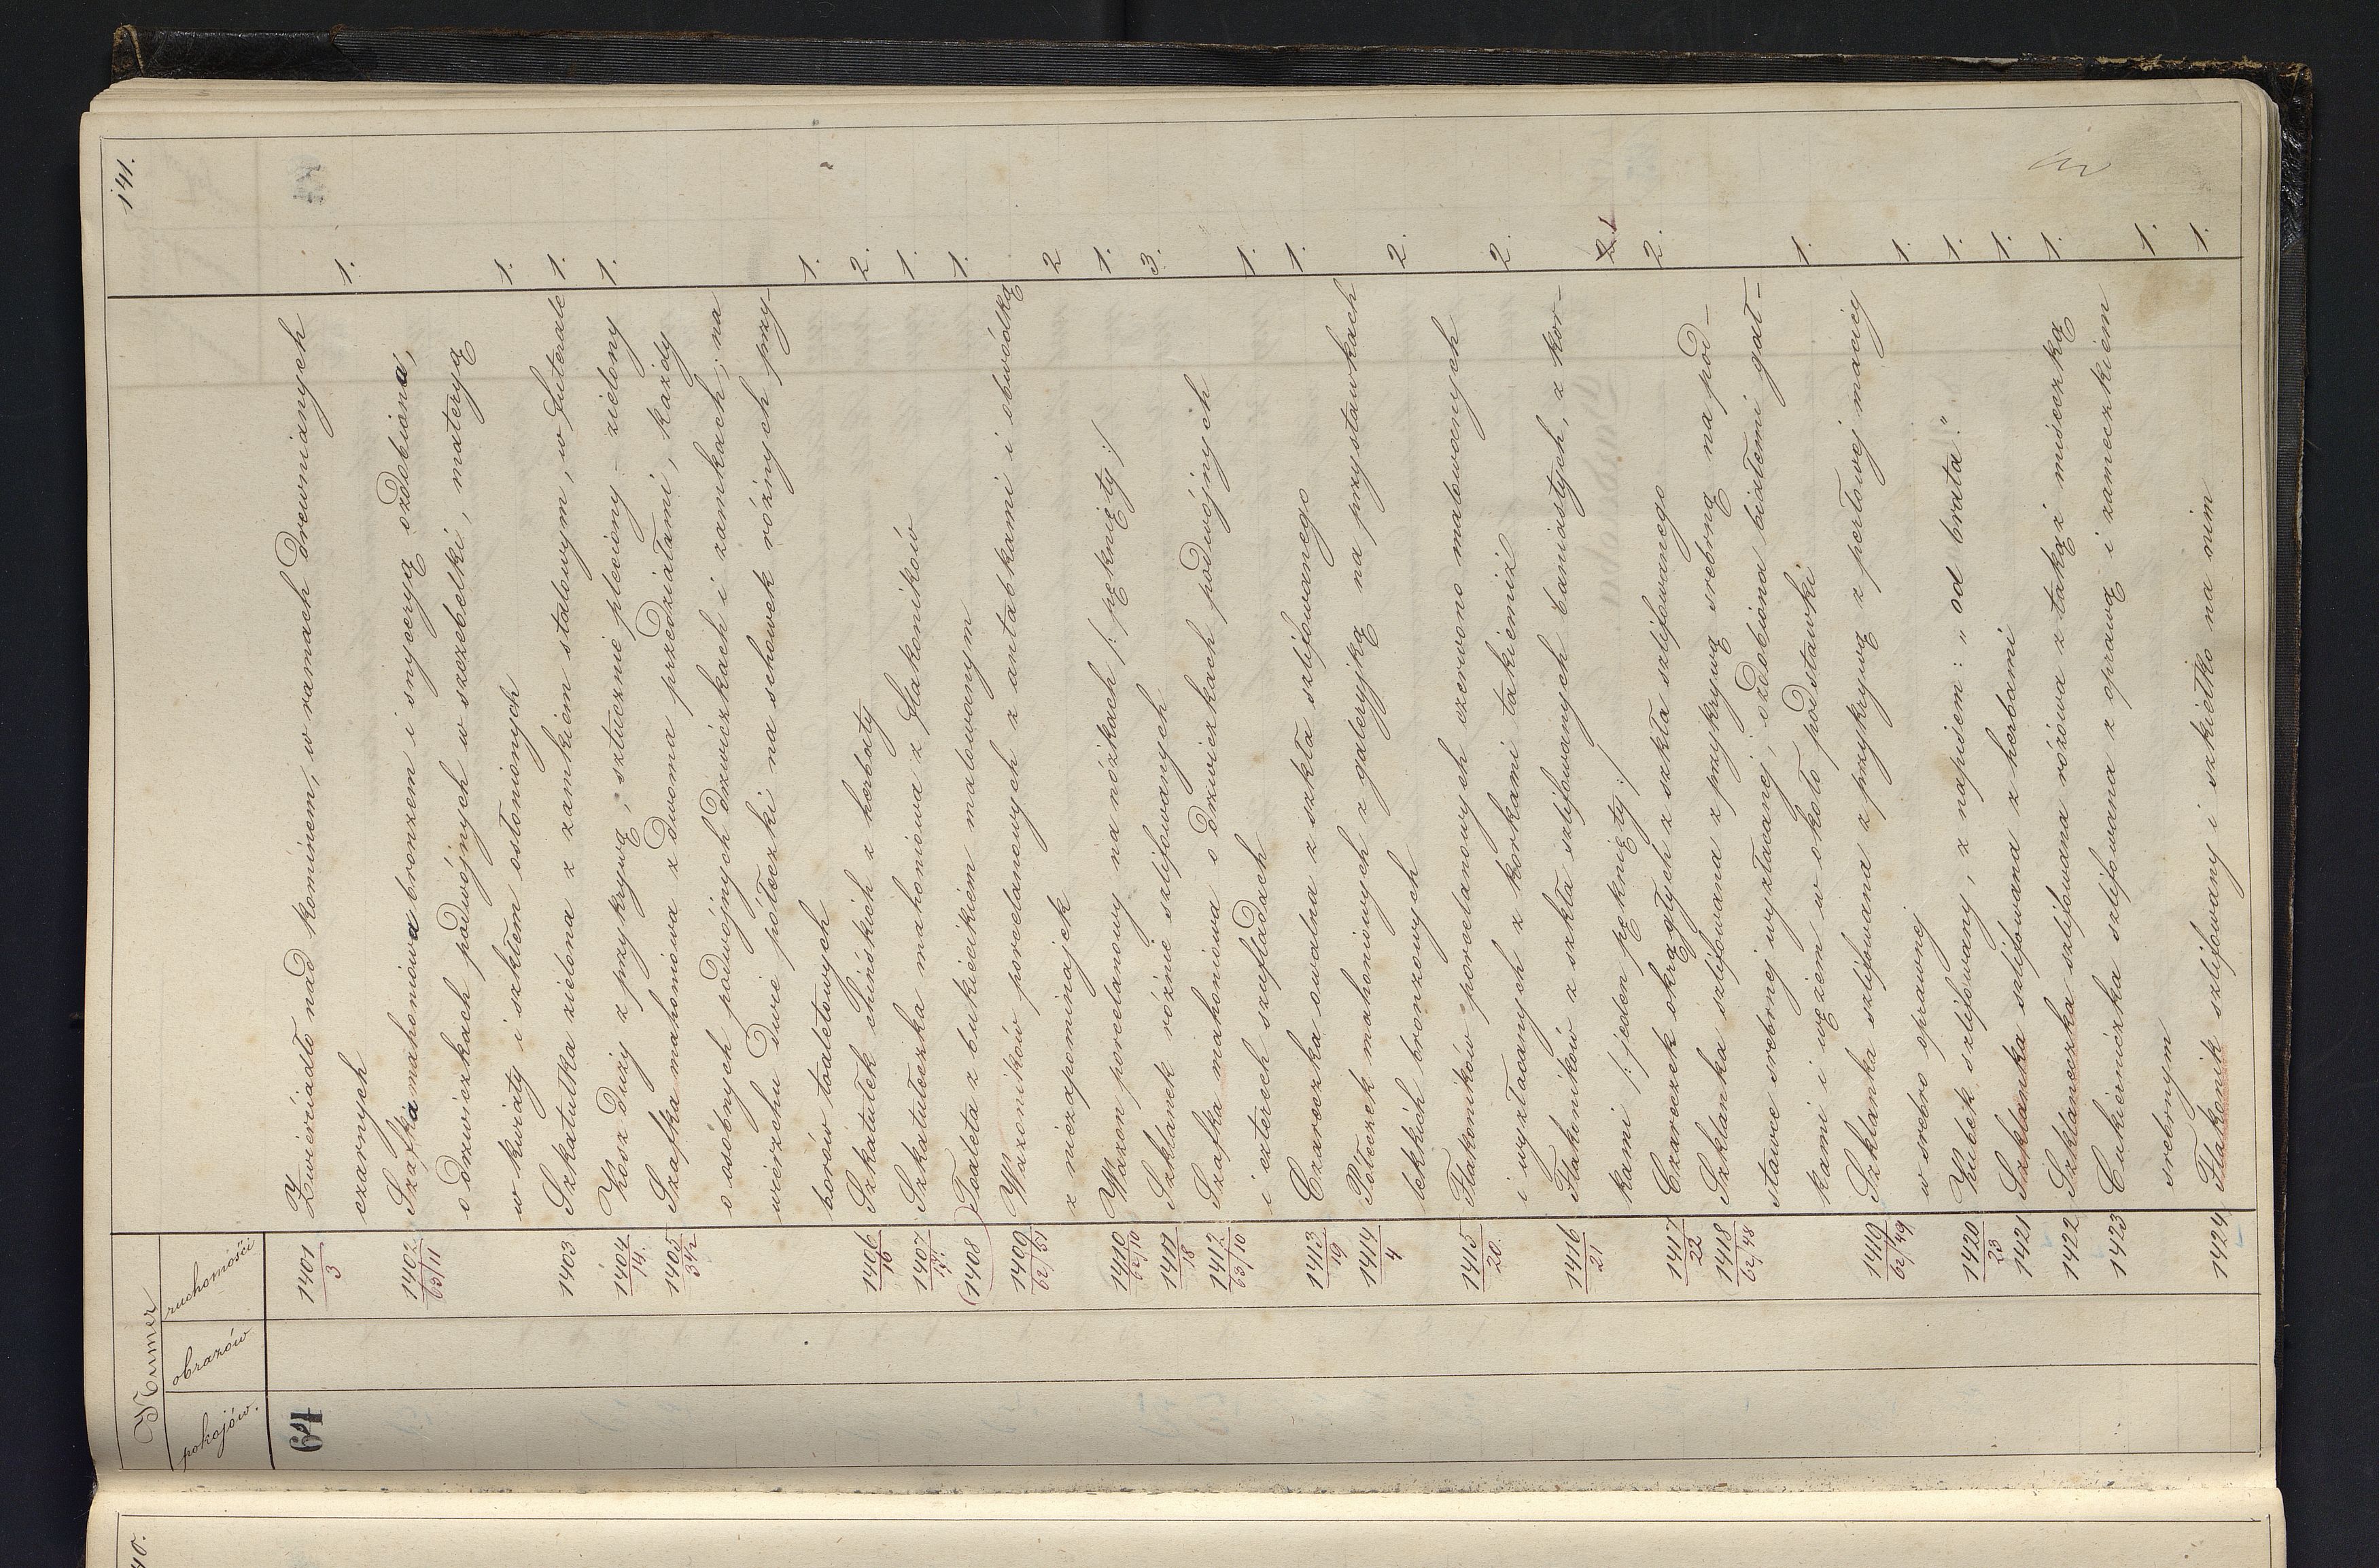 141.
Numer
pokojów. obrazów ruchomości
64 1401/3 Zwierciadło nad kominem, w ramach drewnianych
czarnych 1.
1402/63/11 Szafka mahoniowa bronzem i snyceryą ozdobiona,
o drzwiczkach podwójnych w szczebelki, materyą
w kwiaty i szkłem osłonionych 1.
1403 Szkatułka zielona z zamkiem stalowym, w futerale 1.
1404/14. Kosz duży z przykrywą, sztucznie pleciony - zielony 1.
1405/3 1/2 Szafka mahoniowa z dwoma przedziałami, każdy
o osóbnych podwójnych drzwiczkach i zamkach; na
wierzchu dwie półeczki na schowek różnych przy-
borów toaletowych 1.
1406/16 Szkatułek chińskich z herbaty 2.
1407/17. Szkatułeczka mahoniowa z flakoników 1.
(1408) Toaleta z bukiecikiem malowanym 1.
1409/62/51 Wazoników porcelanowych z antabkami i obwódką
z niezapominajek 2
1410/62/10 Wazon porcelanowy na nóżkach /: pęknięty :/ 1.
1411/18 Szklanek różnie szlifowanych 3.
1412/63/10 Szafka mahoniowa o drzwiczkach podwójnych
i czterech szufladach 1.
1413/19 Czareczka owalna z szkła szlifowanego 1.
1414/4 Półeczek mahoniowych z galeryjką na przystawkach
lekkich bronzowych 2.
1415/20. Flakoników porcelanowych czerwono malowanych
i wyzłacanych z korkami takiemiż 2.
1416/21 Flakoników z szkła szlifowanych baniastych, z kor-
kami /: jeden pęknięty :/ 2 1
1417/22 Czareczek okrągłych z szkła szlifowanego 2.
1418/62/48 Szklanka szlifowana z przykrywą srebrną na pod-
stawce srebrnej wyzłacanej; ozdobiona białemi gał-
kami i wężem w około podstawki 1.
1419/62/49 Szklanka szlifowana z przykrywą z perłowej macicy
w srebro oprawnej 1.
1420/23 Kubek szlifowany, z napisem: „od brata." 1.
1421 Szklanka szlifowana z herbami 1.
1422 Szklaneczka szlifowana różowa z taką i miseczką 1.
1423 Cukierniczka szlifowana z oprawą i zameczkiem
srebrnym 1.
1424 Flakonik szlifowany i szkiełko na nim 1.